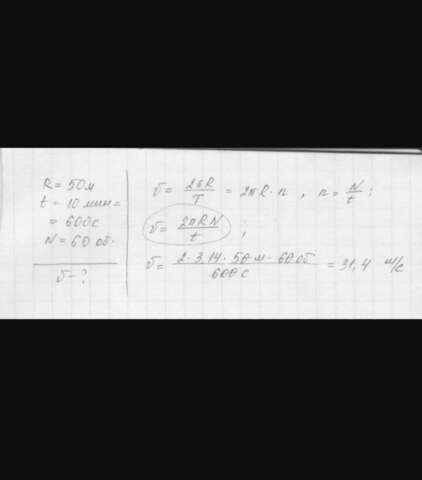 R = 50м
t = 10 мин =
= 600с
N = 60 об.
v - ?
v = 2πR/T = 2πR·n , n = N/t ;
v = 2πRN/t ;
v = 2·3,14·50м·60об/600с = 31,4 м/с